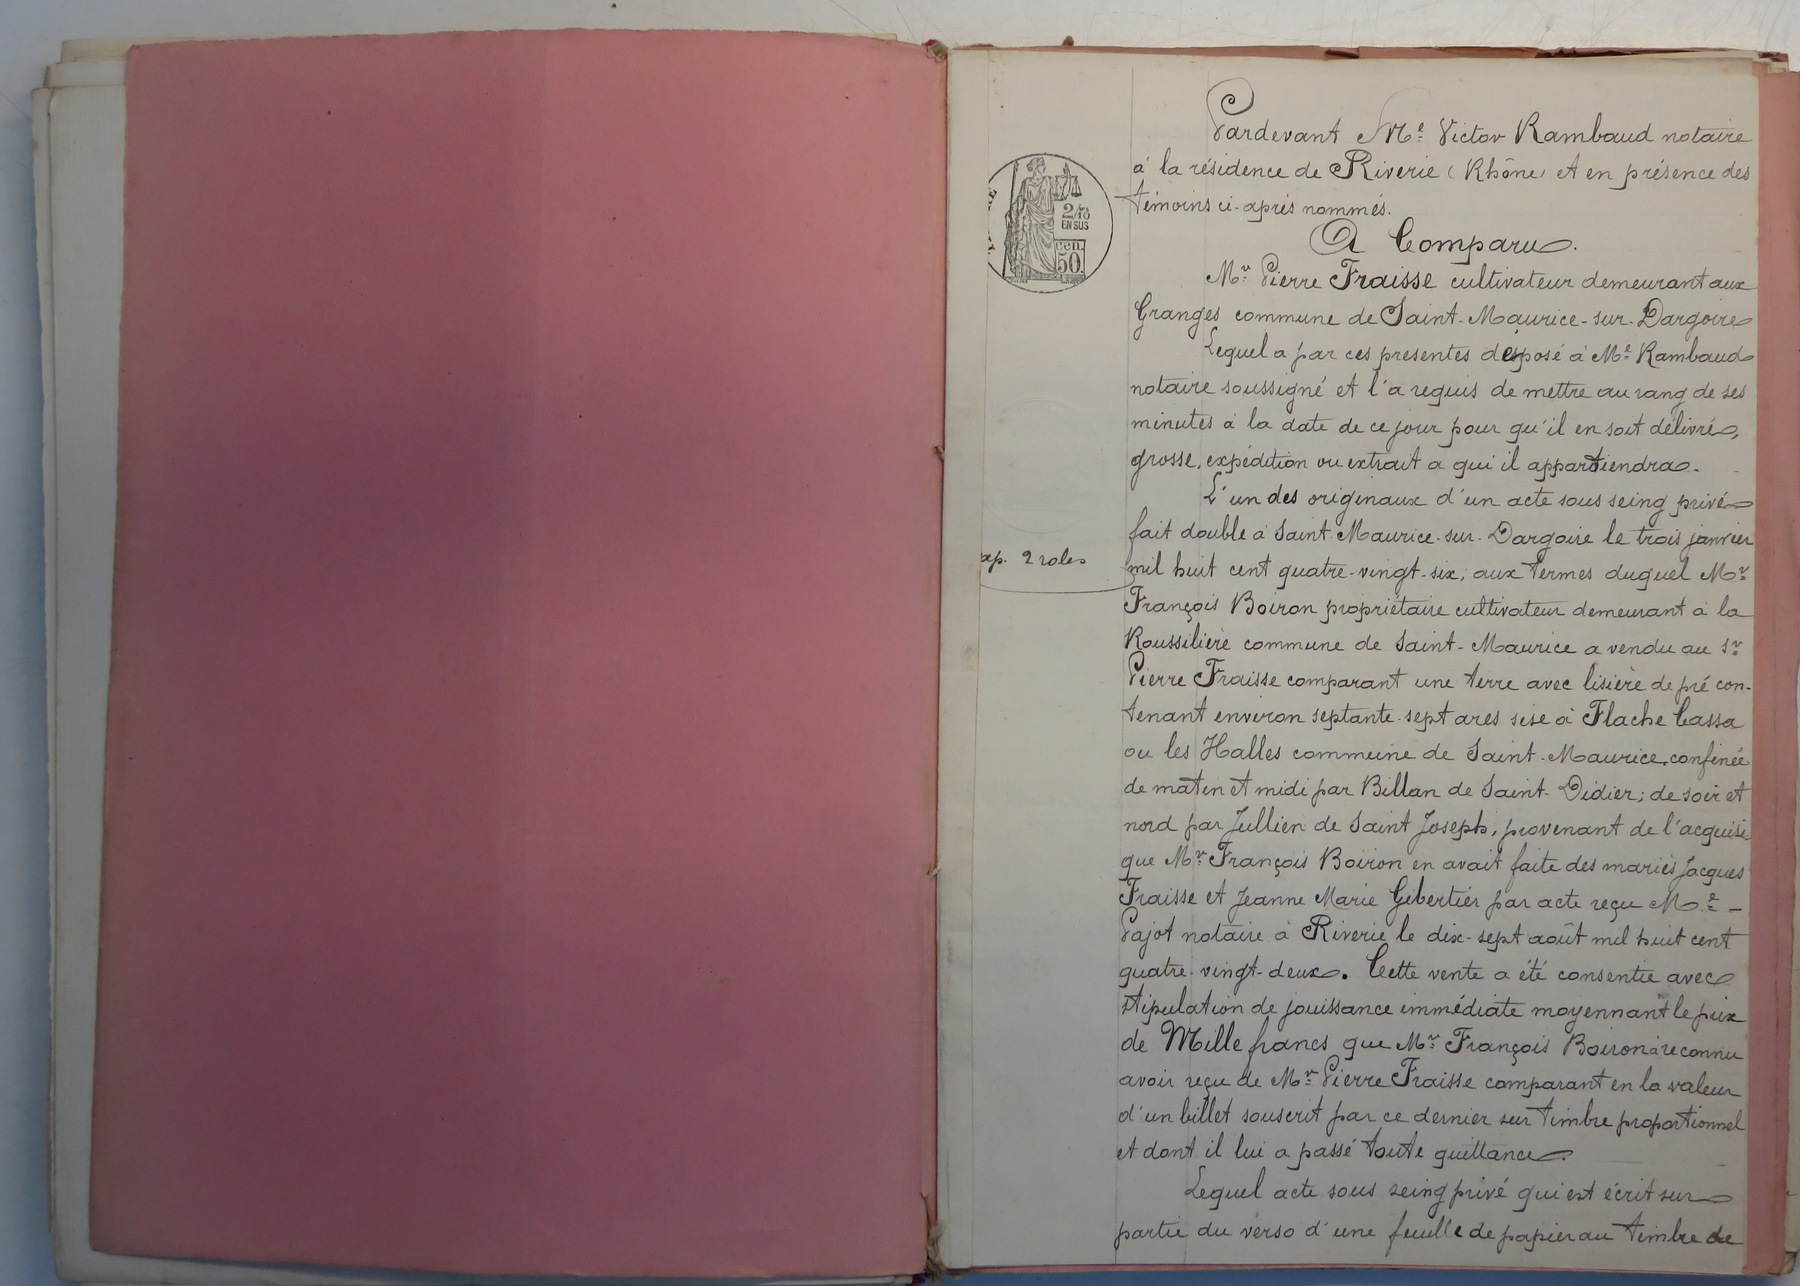 Pardevant Me Victor Rambaud notaire
à la résidence de Riverie (Rhône) et en présence des
témoins ci-après nommés.
A Comparu.
Mr Pierre Fraisse cultivateur demeurant aux
Granges commune de Saint-Maurice-sur-Dargoire
Lequel a par ces presentes déposé à Me Rambaud
notaire soussigné et l'a requis de mettre au rang de ses
minutes à la date de ce jour pour qu'il en soit délivré,
grosse, expédition ou extrait a qui il appartiendra.
L'un des originaux d'un acte sous seing privé
fait double à Saint-Maurice-sur-Dargoire le trois janvier
mil huit cent quatre-vingt-six; aux termes duquel Mr
François Boiron propriétaire cultivateur demeurant à la
Roussilière commune de Saint-Maurice a vendu au Sr
Pierre Fraisse comparant une terre avec lisière de pré con-
tenant environ septante-sept ares sise à Flache Cassa
ou les Halles commune de Saint-Maurice, confinée
de matin et midi par Billan de Saint-Didier; de soir et
nord par Jullien de Saint Joseph, provenant de l'acquisi
que Mr François Boiron en avait faite des mariés Jacques
Fraisse et Jeanne Marie Gibertier par acte reçu Me -
Pajot notaire à Riverie le dix-sept août mil huit cent
quatre-vingt-deux. Cette vente a été consentie avec
stipulation de jouissance immédiate moyennant le prix
de Mille francs que Mr François Boiron a reconnu
avoir reçu de Mr Pierre Fraisse comparant en la valeur
d'un billet souscrit par ce dernier sur timbre proportionnel
et dont il lui a passé toute quittance.
Lequel acte sous seing privé qui est écrit sur
partie du verso d'une feuille de papier au timbre de
xp. 2 roles
2/10
EN SUS
cen.
50.